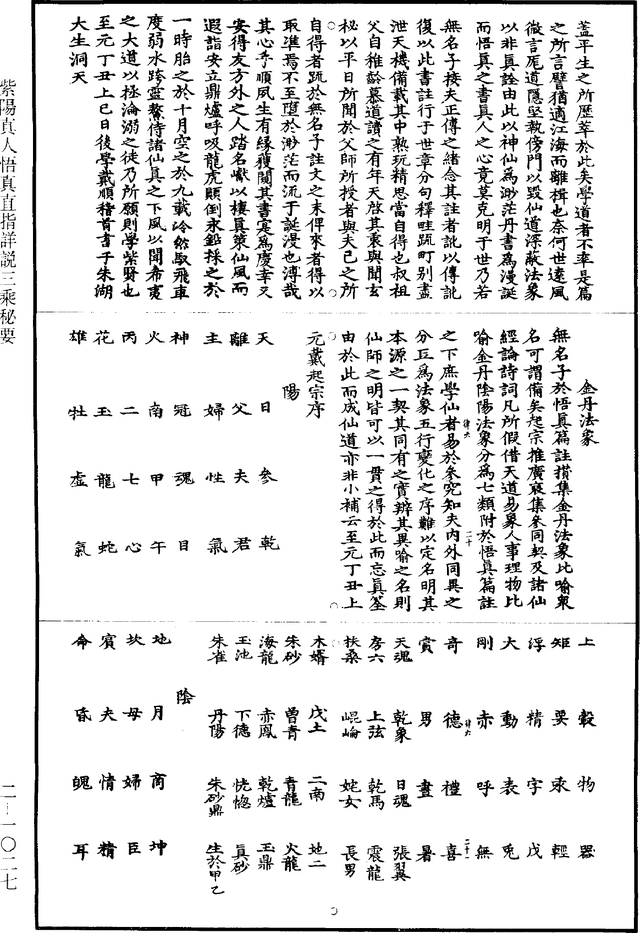 蓋平生之所歷萃於此矣學道者不率是篇
之所言譬猶適江海而離楫也奈何世遠風
微言庬道隱坚執傍門以毀仙道深蔽法象
以非真詮由此以神仙為渺茫丹書為漫誕
而悟真之書真人之心竟莫克明于世乃若
無名子接夫正傳之緒念其註者訛以傳訛
復以此書註行于世章分句釋畦疏町別盡
泄天機備載其中熟玩精思當自得也叔祖
父自稚齡慕道讀之有年天啓其衷與聞玄
秘以平日所聞於父師所授者與夫己之所
自得者疏於無名子註文之末俾來者得以
取準焉不至墮於渺茫而流于誕漫也溥哉
其心乎順夙生有緣獲閱其書寔為慶幸又
安得友方外之人踏名巘以棲真策仙風而
遐詣安立鼎爐呼吸龍虎顛倒永鉛採之於
一時胎之於十月空之於九載泠然馭飛車
度弱水跨靈鰲侍諸仙真之下風以聞希夷
之大道以極淪溺之徒乃所願則學紫賢也
至元丁丑上巳日後學戴順稽首書于朱湖
大生洞天
金丹法象
無名子於悟真篇註攅集金丹法象比喻衆
名可謂備矣起宗推廣裒集參同契及諸仙
經論詩詞凡所假借天道易象人事理物比
喻金丹陰陽法象分為七類附於悟真篇註
之下庶學仙者易於參究知夫内外同異之
分互為法象五行變化之序難以定名明其
本源之一契其同有之實辨其異喻之名則
仙師之明皆可以一貫之得於此而忘真筌
由於此而成仙道亦非小補云至元丁丑上
元戴起宗序
陽
天 日 參 乾
離 父 夫 君
主 婦 性 氣
神 冠 魂 日
火 南 甲 午
丙 二 七 心
花 玉 龍 蛇
雄 牡 虛 氣
上 轂 物 器
矩 要 汞 輕
浮 精 字 戊
大 動 表 兎
剛 赤 呼 無
奇 德 禮 喜
賞 男 晝 暑
天魂 乾象 日魂 張翼
房六 上弦 乾馬 震龍
扶桑 崐崘 姹女 長男
木婿 戊土 二南 地二
朱砂 曽青 青龍 火龍
海龍 赤鳳 乾爐 玉鼎
玉池 下德 恍惚 真砂
朱雀 丹陽 朱砂鼎 生於甲乙
陰
地 月 商 坤
坎 母 婦 臣
賓 夫 情 精
命 昏 魄 耳
紫陽真人悟真直指詳説三乘秘要
二—一〇二七